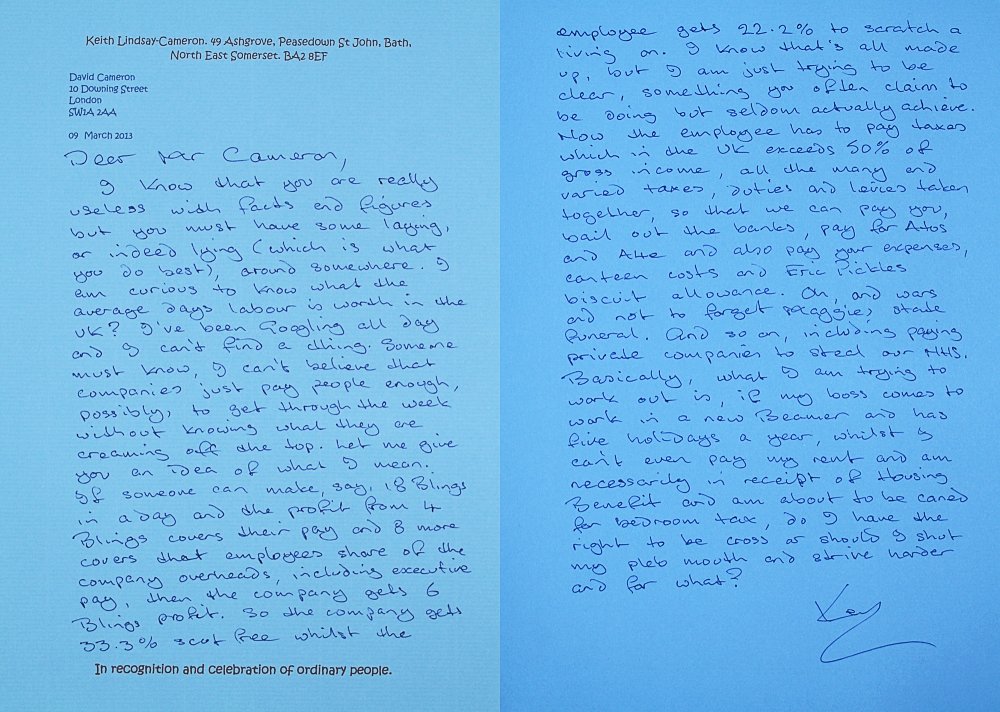 Keith Lindsay-Cameron. 49 Ashgrove, Peasedown St John, Bath,
North East Somerset. BA2 8EF
David Cameron
10 Downing Street
London
SW1A 2AA
09 March 2013
Dear Mr Cameron,
I know that you are really
useless with facts and figures
but you must have some laying,
or indeed lying (which is what
you do best), around somewhere. I
am curious to know what the
average days labour is worth in the
UK? I've been Googling all day
and I can't find a thing. Someone
must know, I can't believe that
companies just pay people enough,
possibly, to get through the week
without knowing what they are
creaming off the top. Let me give
you an idea of what I mean.
If someone can make, say, 18 Blings
in a day and the profit from 4
Blings covers their pay and 8 more
covers that employees share of the
company overheads, including executive
pay, then the company gets 6
Blings profit. So the company gets
33.3% scot free whilst the
In recognition and celebration of ordinary people.
employee gets 22.2% to scratch a
living on. I know that's all made
up, but I am just trying to be
clear, something you often claim to
be doing but seldom actually achieve.
Now the employee has to pay taxes
which in the UK exceeds 50% of
gross income, all the many and
varied taxes, duties and levies taken
together, so that we can pay you,
bail out the banks, pay for Atos
and A4e and also pay your expenses,
canteen costs and Eric Pickles
biscuit allowance. Oh, and wars
and not to forget Maggies state
funeral. And so on, including paying
private companies to steal our NHS.
Basically, what I am trying to
work out is, if my boss comes to
work in a new Beamer and has
five holidays a year, whilst I
can't even pay my rent and am
necessarily in receipt of Housing
Benefit and am about to be caned
for bedroom tax, do I have the
right to be cross or should I shut
my pleb mouth and strive harder
and for what?